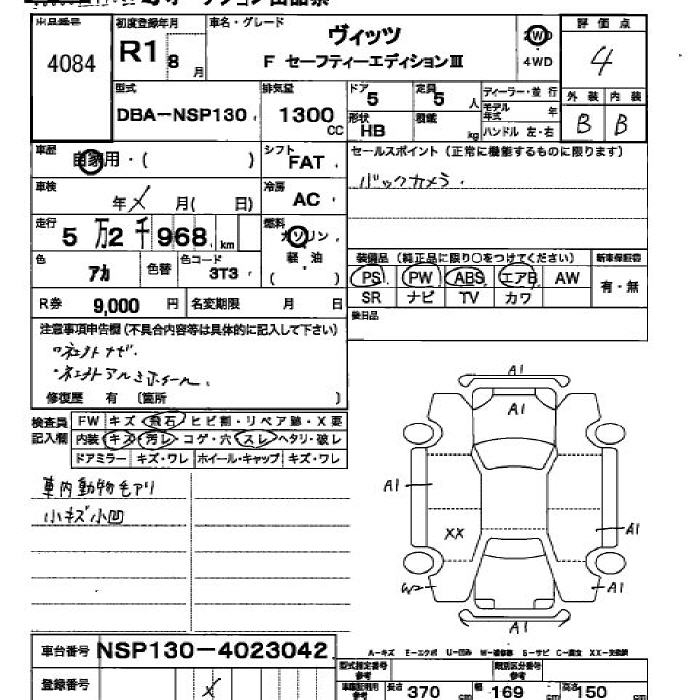 出品番号 初度登録年月 車名・グレード 評価点
4084 R1 8月 ヴィッツ 2WD 4
F セーフティーエディションⅢ 4WD
型式 排気量 ドア 定員 ディーラー・並行 外装 内装
DBA-NSP130 1300CC 5 5人 モデル年式 年 B B
形状 積載 HB kg ハンドル 左・右
車歴 自家用・( ) シフト FAT セールスポイント(正常に機能するものに限ります)
車検 年 月( 日) 冷房 AC バックカメラ.
走行 5万2千968km 燃料 ガソリン 軽油 ( )
装備品(純正品に限り○をつけてください) 新車保証書
色 アカ 色替 色コード 3T3
PS PW ABS エアB AW 有・無
SR ナビ TV カワ
R券 9,000円 名変期限 月 日 後日品
注意事項申告欄(不具合内容等は具体的に記入して下さい)
・社外ナビ.
・社外アルミホイール.
修復歴 有 〔箇所
検査員記入欄 FW キズ 飛石 ヒビ割・リペア跡・X要
内装 キズ 汚レ コゲ・穴 スレ ヘタリ・破レ
ドアミラー キズ・ワレ ホイール・キャップ キズ・ワレ
車内動物毛アリ
小キズ小凹
A1
A1
A1
XX A1
W2 A1
A1
車台番号 NSP130-4023042
A-キズ E-エクボ U-凹み W-補修跡 S-サビ C-腐食 XX-交換済
登録番号 型式指定番号 参考 類別区分番号 参考
長さ 370cm 幅 169cm 高さ 150cm